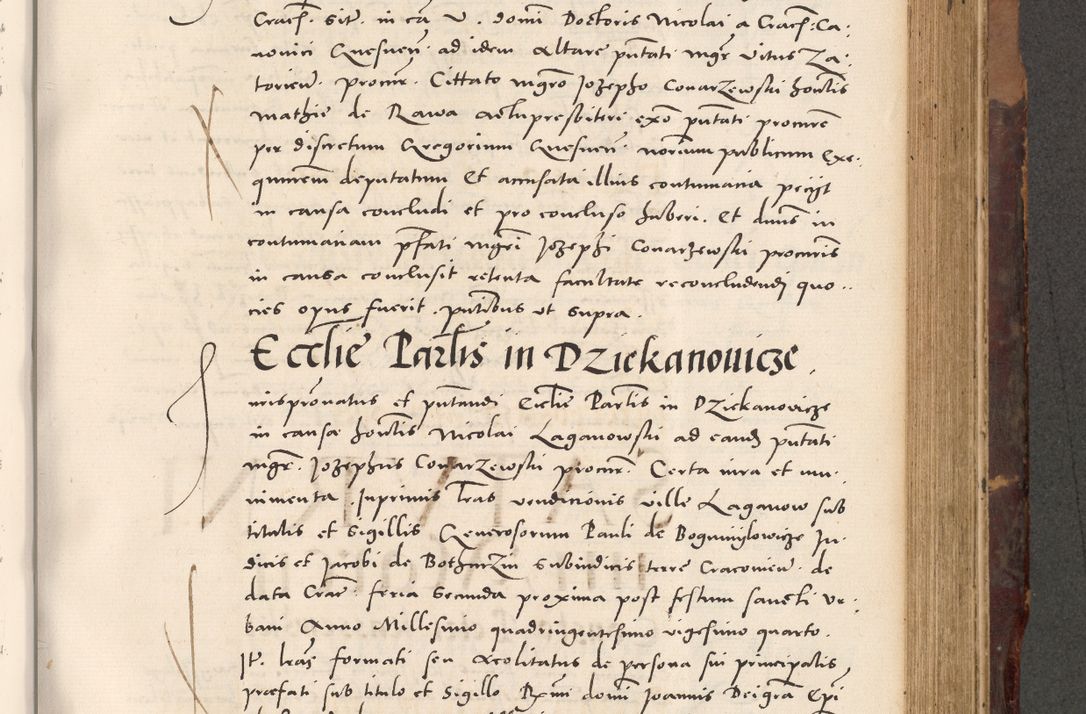 Cracẽ. Sitr̃. in cã V. domĩ Doctoris Nicolai a Cracẽ. Ca:
nonici Gnesneñ. ad idem Altare pñtati mgr̃ Vitus Za:
torieñ. procur̃. Cittato mgrõ Jozepho Conarzewski honl̃is
mathie de Rawa Altupresbiteri exõ pñtati procurẽ
per discretum Gregorium Gnesneñ. norium publicum Exe:
qucnẽm deputatum Et accusata illius contumacia pecijt
in causa concludi et pro concluso haberi. Et dnus in
contumaciam pfati mgrĩ Jozephi Conarzewski procuris
in causa conclusit retenta facultate reconcludendi quo:
cies opus fuerit. pñtibus ut supra.
Ecclie Parlis in DZiekanouicze.
iurispronatus et pñtandi Ecclie Parlis in DZiekanovicze
in causa honl̃is Nicolai Laganowski ad eand pñtati
mgr̃. Jozephus ConarZewski procur̃. Certa iura et mu:
nimenta. Inprimis lras vendicionis ville Laganow sub
titulis et Sigillis Generosorum Pauli de Bogumylowicze Ju:
dicis et Jacobi de BothurZin Subiudicis terre Cracovieñ. de
data Crac̃. feria Secunda proxima post festum sancti Vr:
bani Anno Millesimo quadringentesimo vigesimo quarto.
Jt̃. lras formati seu Acolitatus de persona sui principalis
praefati sub titulo et Sigillo Rx̃mi domĩ Joannis Dei gr̃a Ep̃i